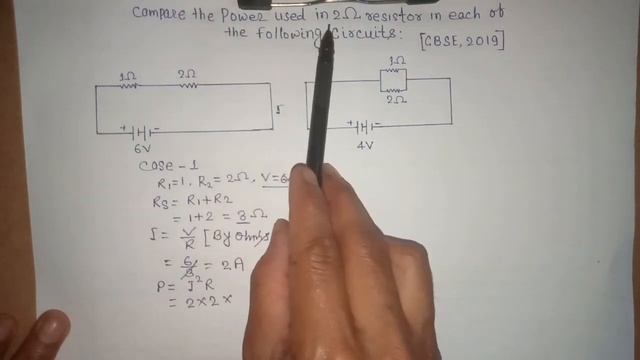 Compare the Power used in 2Ω resistor in each of
the following Circuits: [CBSE, 2019]
1Ω 2Ω
I
+ -
6V
1Ω
2Ω
+ -
4V
Case - 1
R1=1, R2 = 2Ω, V=6
RS = R1+R2
= 1+2 = 3Ω
I = V/R [By ohm's
= 6/3 = 2A
P = I²R
= 2×2×